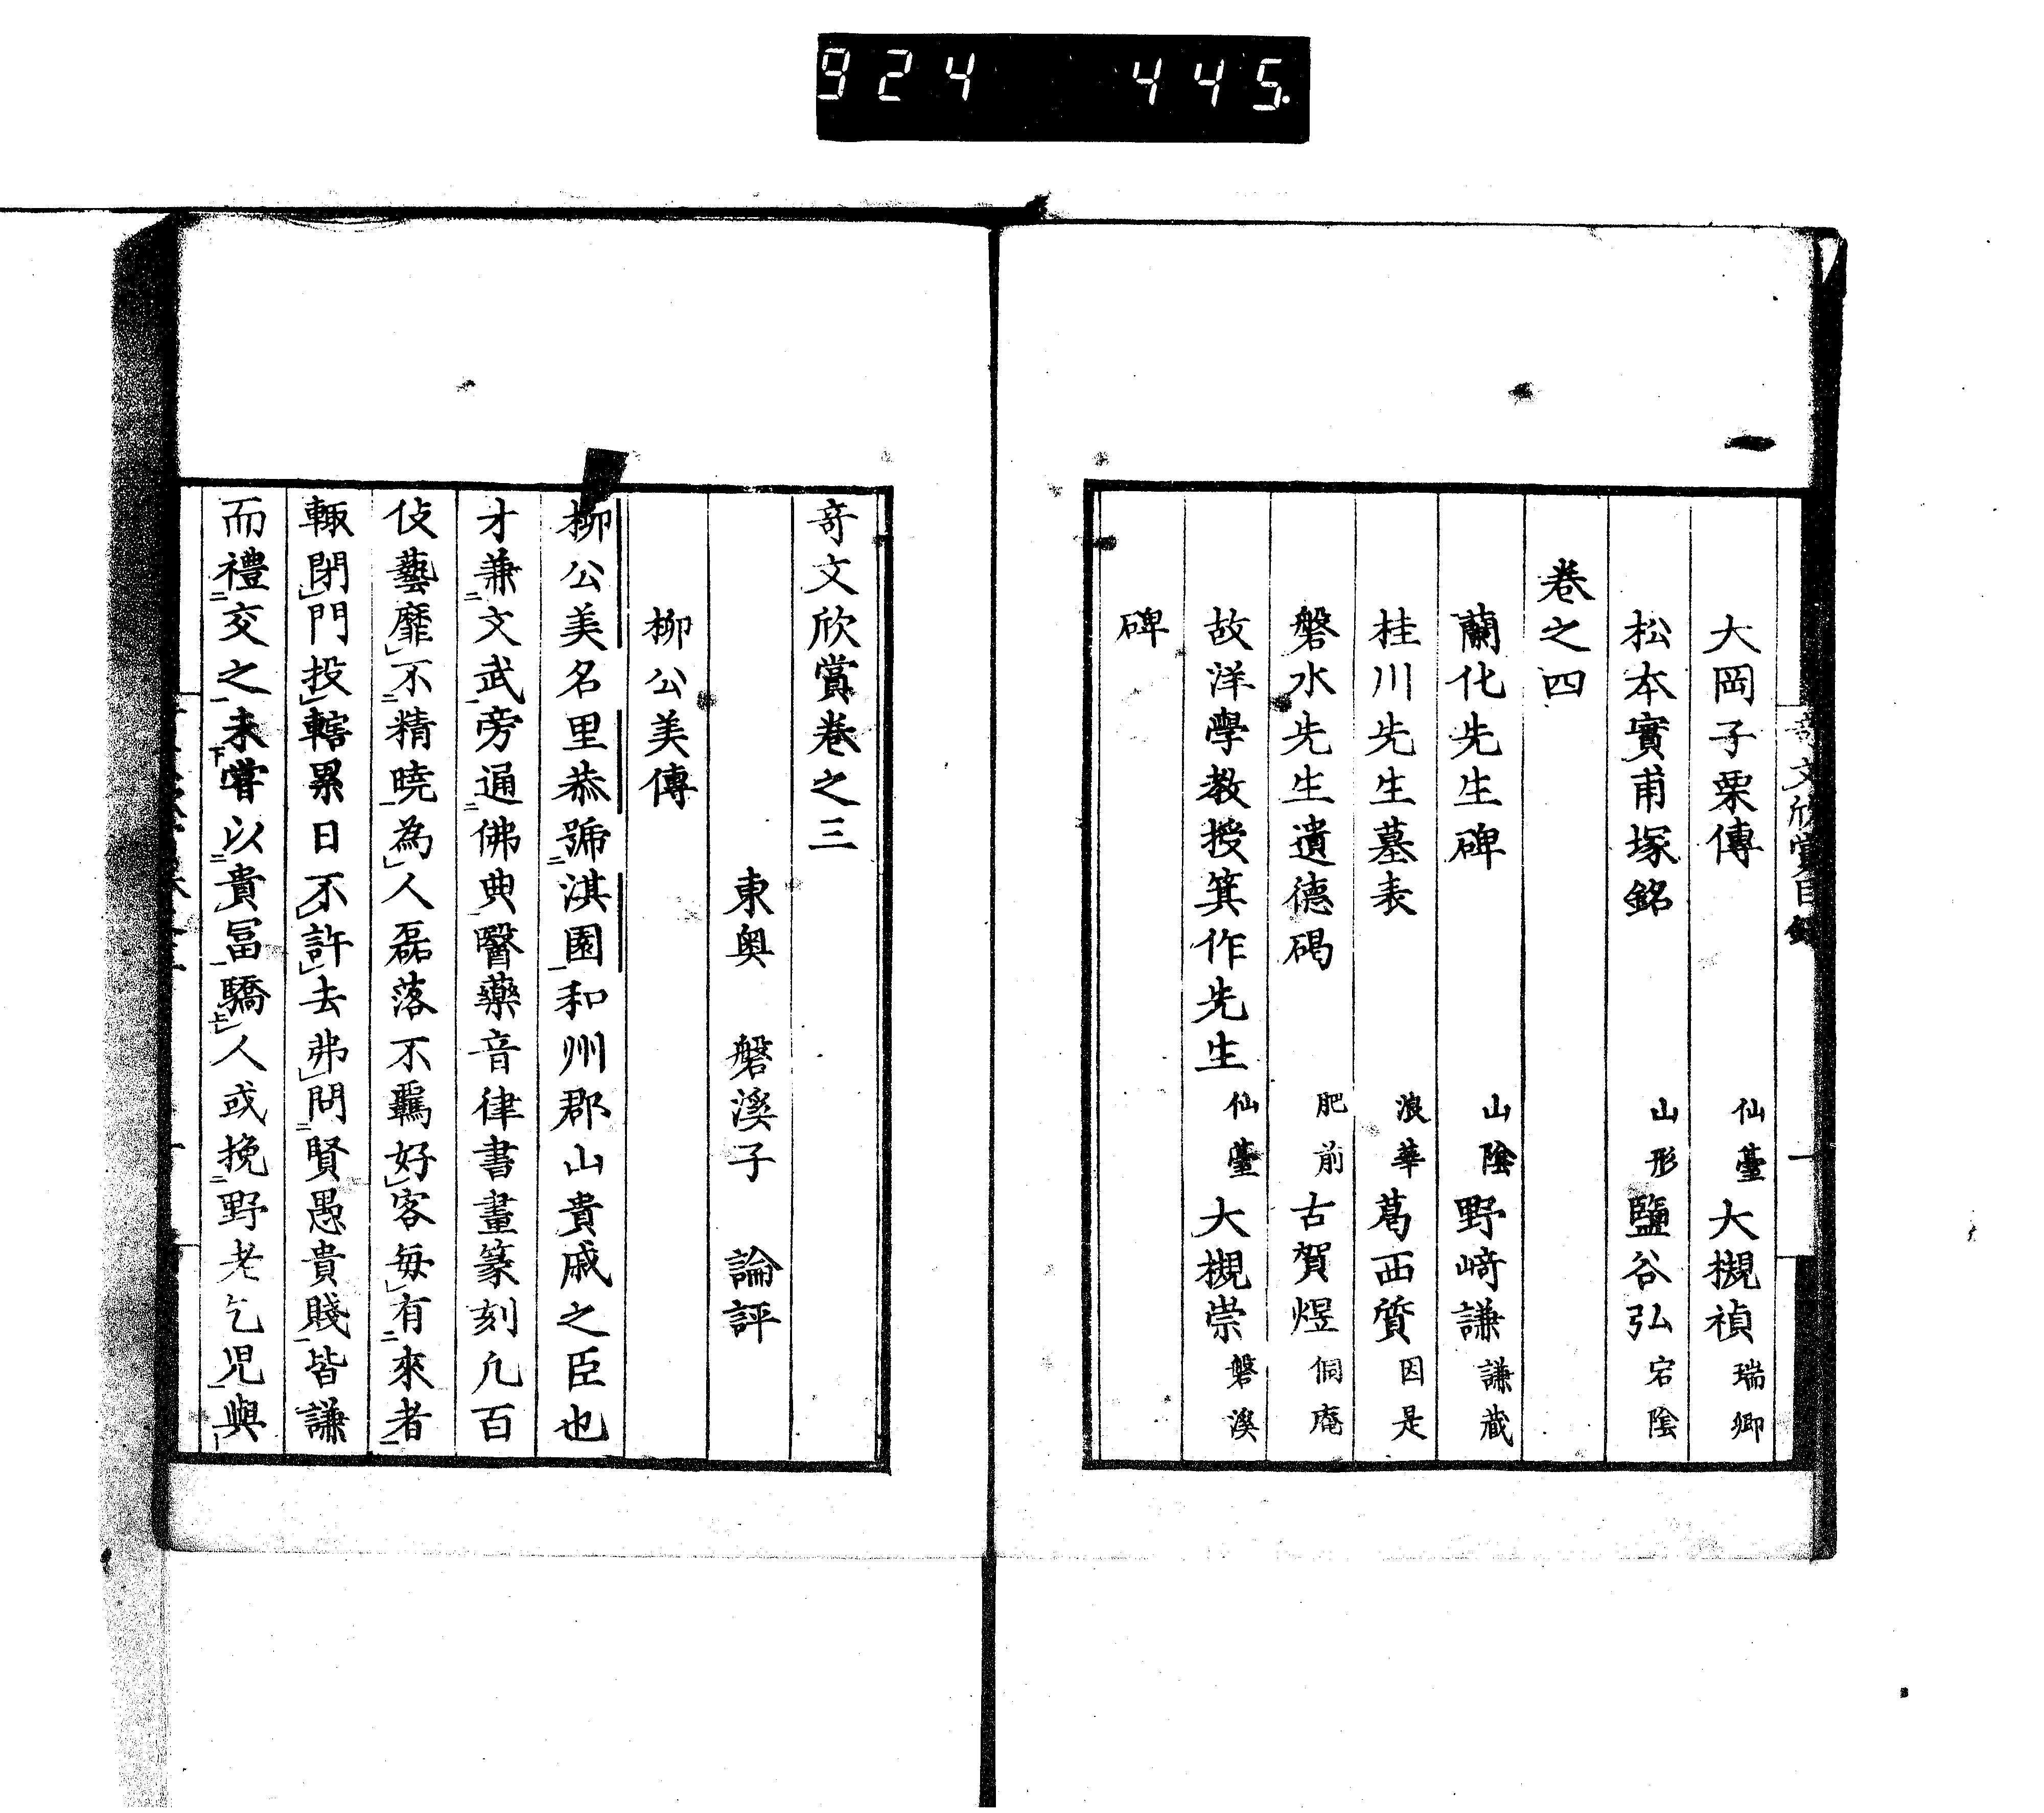 924 445.
奇文欣賞目錄
一
大岡子栗傳 仙臺 大槻禎 瑞卿
松本實甫塚銘 山形 鹽谷弘 宕陰
卷之四
蘭化先生碑 山陰 野﨑謙 謙藏
桂川先生墓表 浪華 葛西質 因是
磐水先生遺德碣 肥前 古賀煜 侗庵
故洋學教授箕作先生 仙臺 大槻崇 磐溪
碑
奇文欣賞卷之三
東奥 磐溪子 論評
柳公美傳
柳公美名里恭號二淇園一和州郡山貴戚之臣也
才兼二文武一旁通二佛典一醫藥音律書畫篆刻凡百
伎藝靡レ不二精曉一為レ人磊落不羈好レ客每レ有二來者一
輒閉レ門投レ轄累日不レ許レ去弗レ問二賢愚貴賤一皆謙
而禮二交之一未下嘗以二貴冨一驕上レ人或挽二野老乞児一與